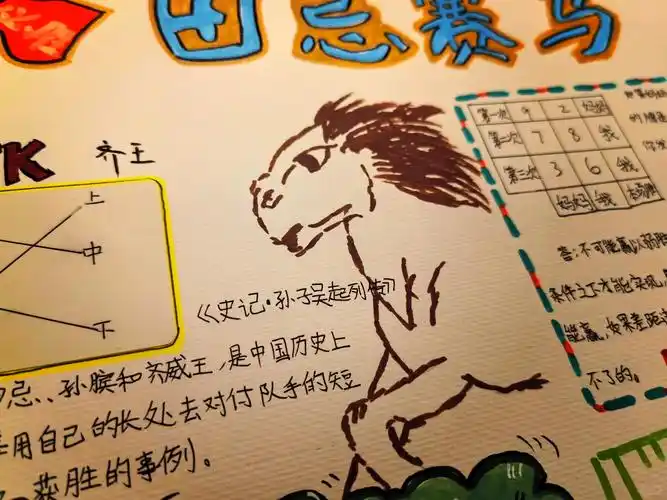 田忌赛马
K 齐王
上
中
下
第一次 9 2 妈妈
第二次 7 8 我
第三次 3 6 我
妈妈 我
答:不可能赢以弱胜
条件之下才能实现,
能赢,如果差距
不了的。
《史记·孙子吴起列传》
忌、孙膑和齐威王,是中国历史上
用自己的长处去对付队手的短
获胜的事例。